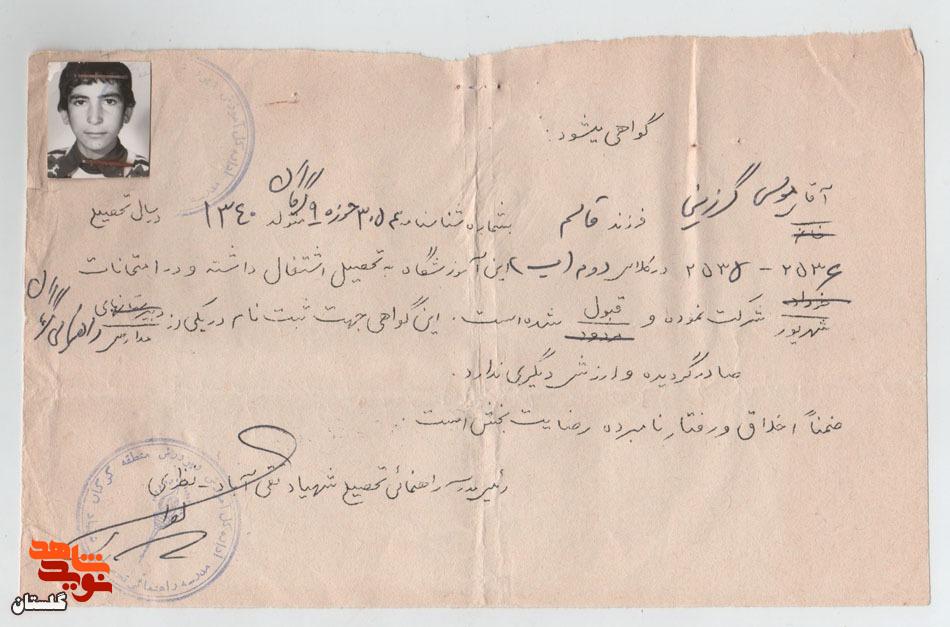 گواهی میشود:
آقای موسی گرزینی فرزند قاسم بشماره شناسنامه ۳۰۵۴ حوزه ۹ گرگان متولد ۱۳۴۰ در سال تحصیلی
خانم
۲۵۳۶ – ۲۵۳۵ در کلاس دوم (ب) این آموزشگاه به تحصیل اشتغال داشته و در امتحانات
خرداد
شهریور شرکت نموده و قبول شده است. این گواهی جهت ثبت نام در یکی از دبیرستانهای
مردود
مدارس راهنمائی گرگان
صادر گردیده و ارزش دیگری ندارد.
ضمناً اخلاق و رفتار نامبرده رضایت بخش است.
رئیس مدرسه راهنمائی تحصیلی شهیاد تقی آباد - نظری
مدرسه راهنمائی
منطقه گرگان
نوید شاهد
گلستان